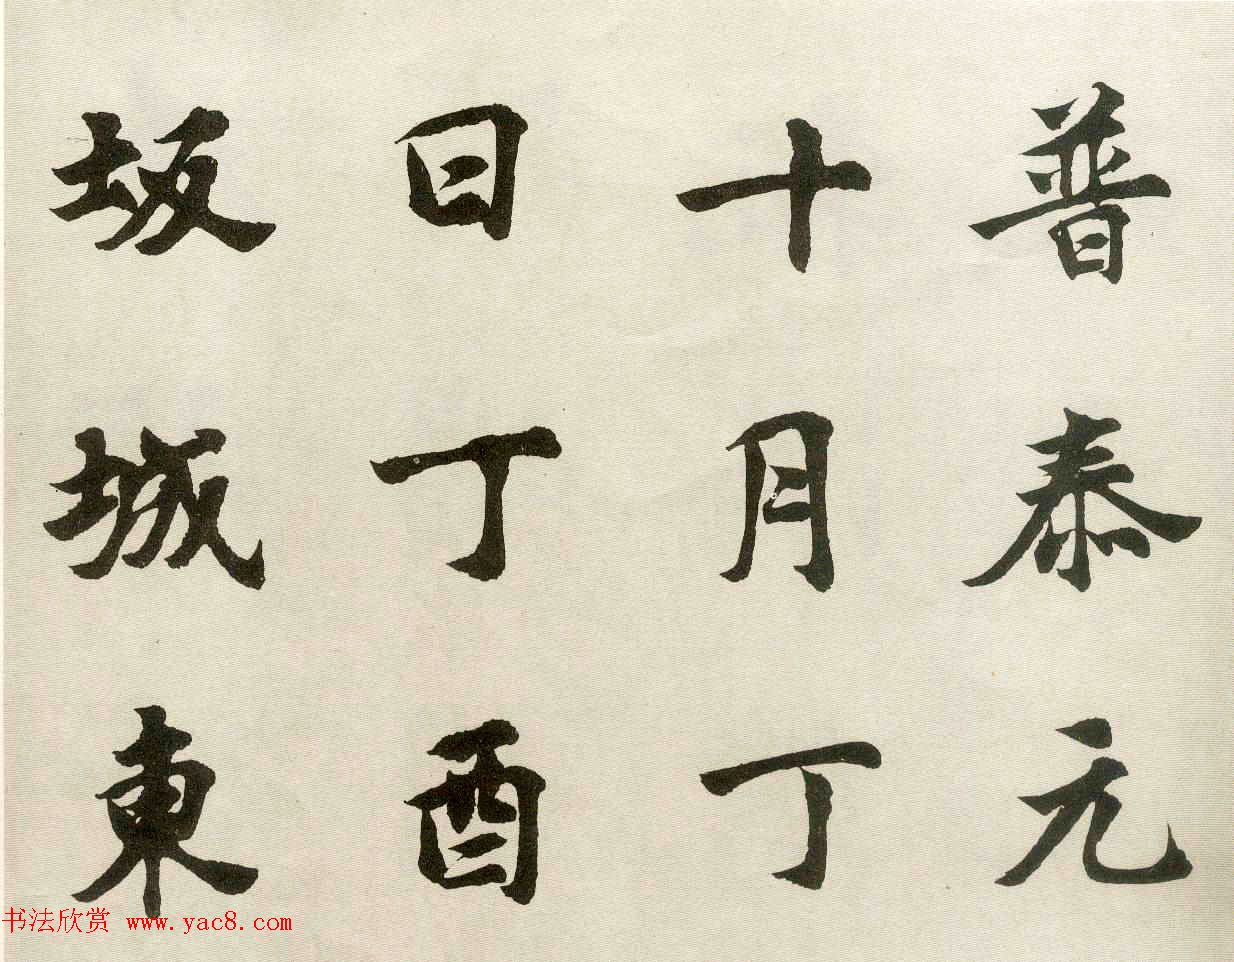 普泰元
十月丁
日丁酉
坂城東
书法欣赏 www.yac8.com